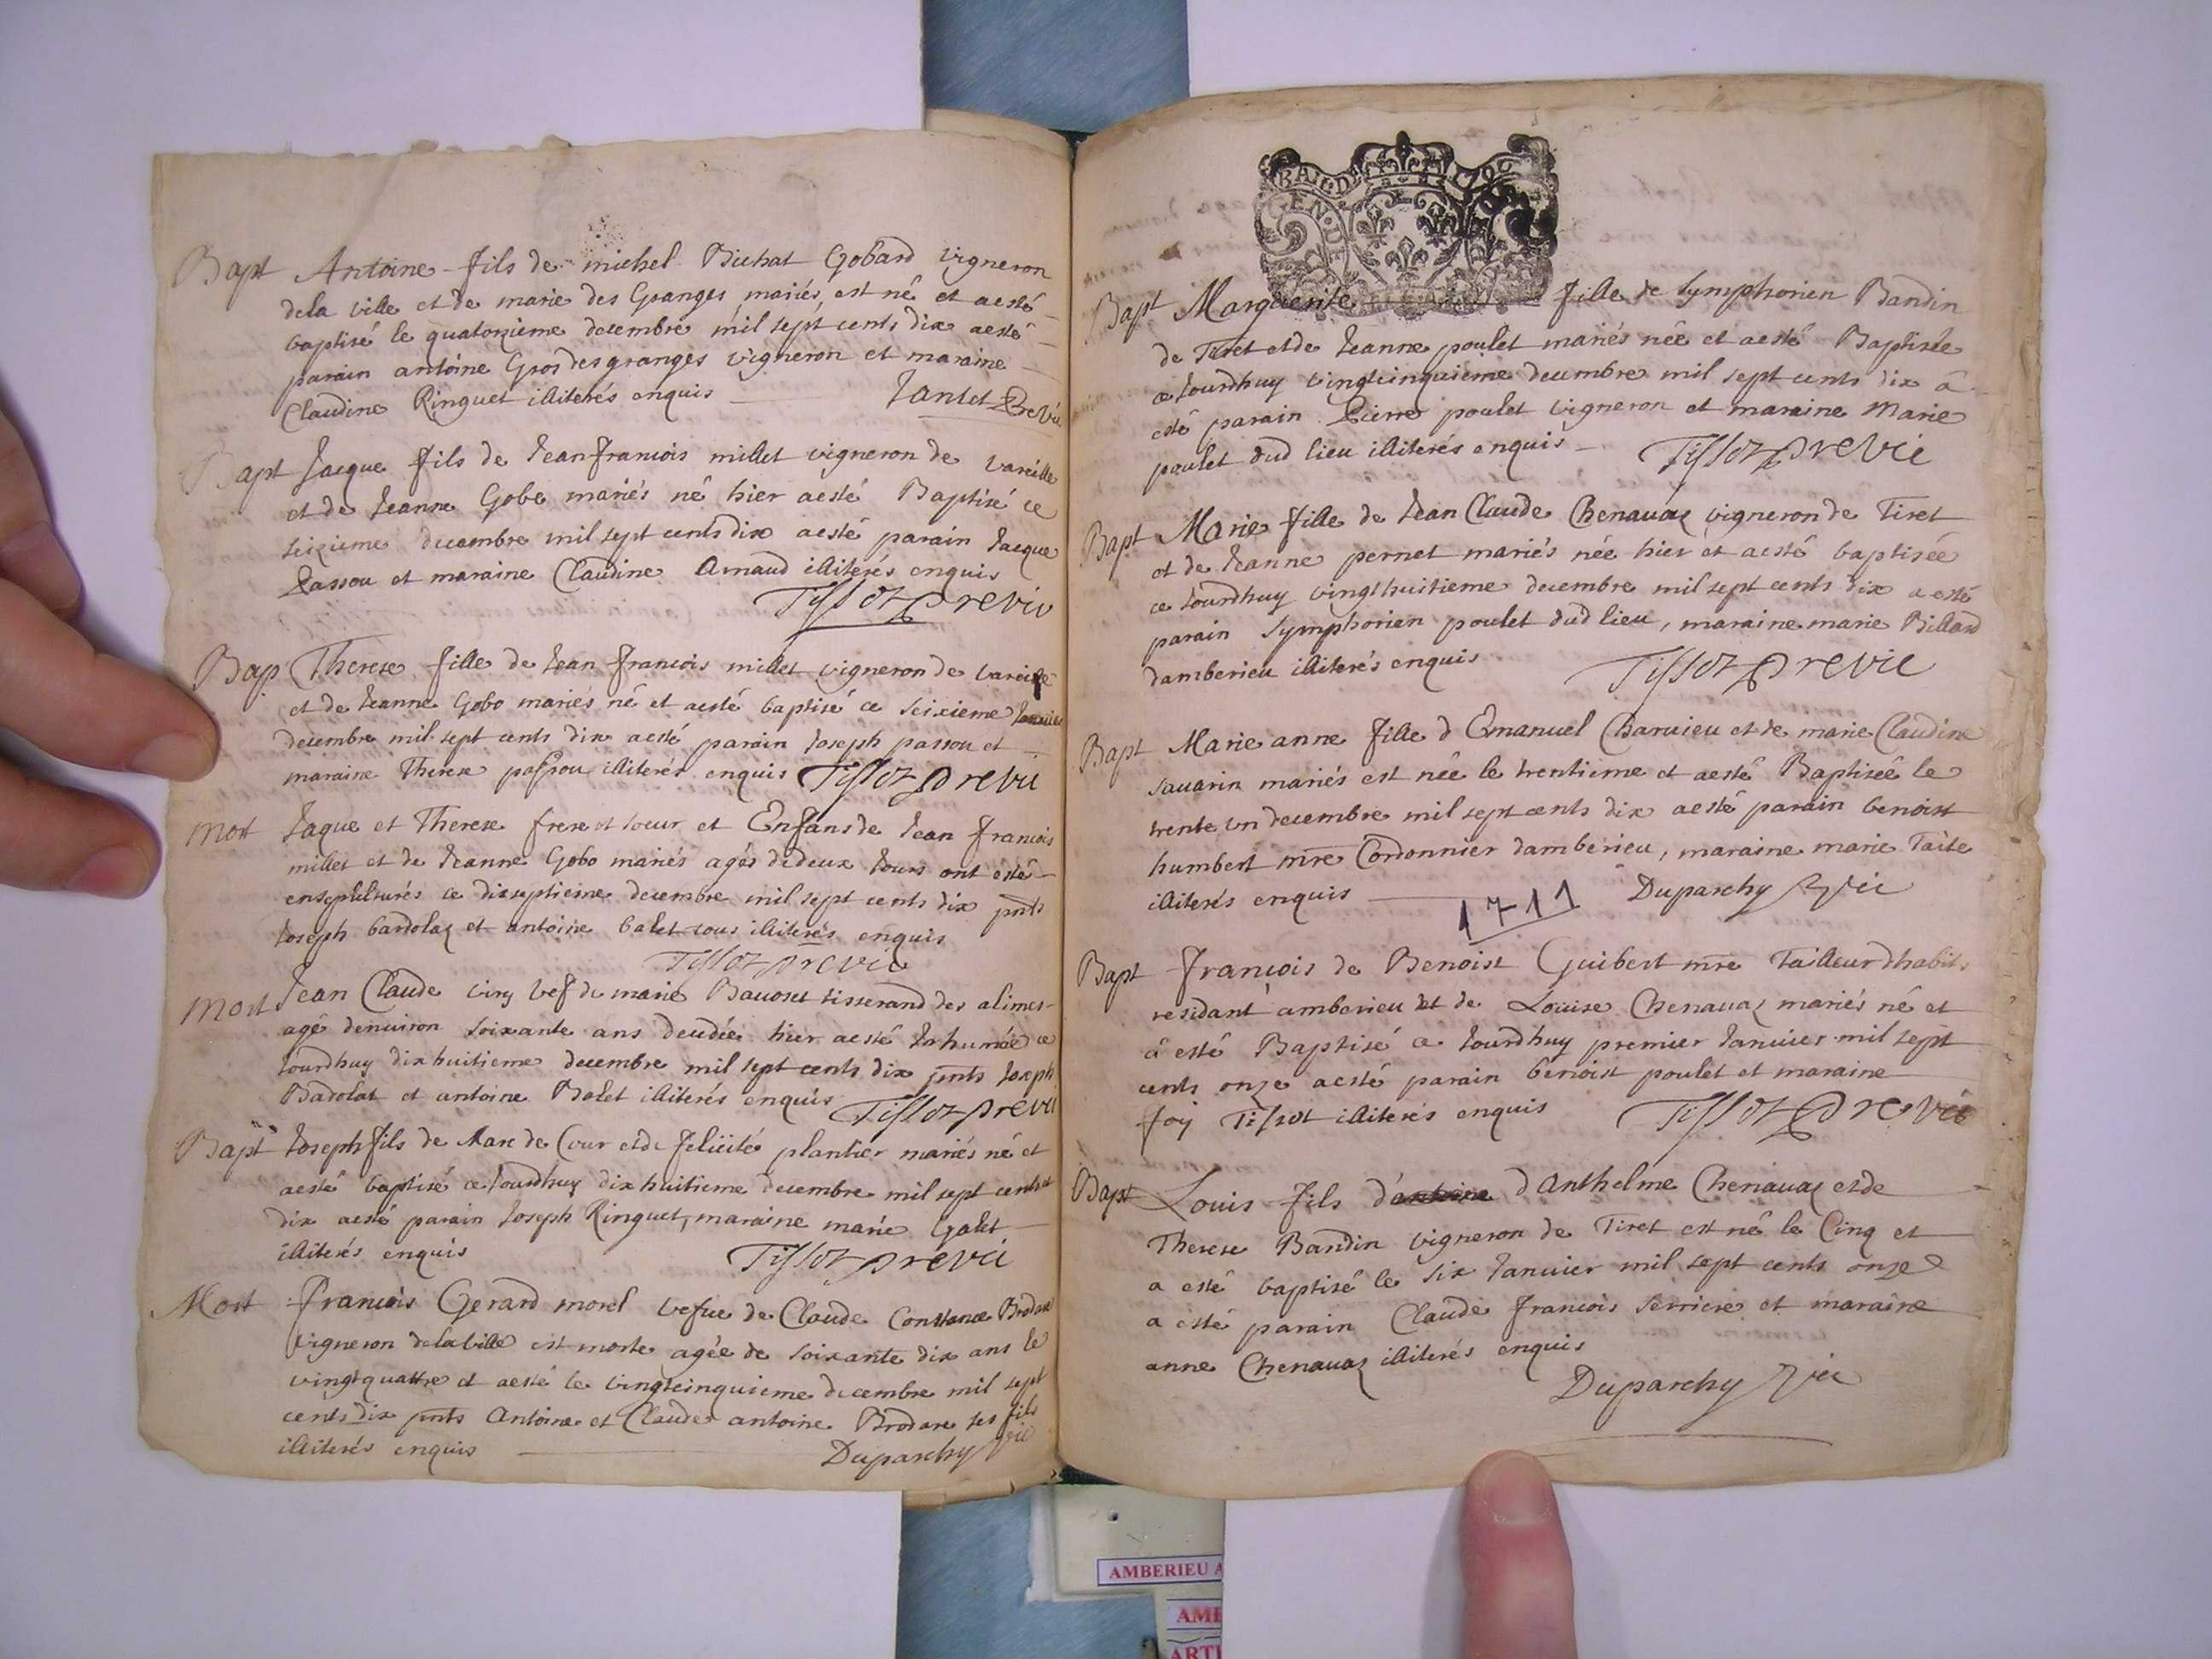 Bapt Antoine fils de michel Bichat Gobard vigneron
dela ville et de marie des Granges mariés, est né et aesté
baptisé le quatorzieme decembre mil sept cents dix aesté
parain antoine Gros desgranges vigneron et maraine
Claudine Ringuet illiterés enquis Jantet
Bapt Jacque fils de Jean francois millet vigneron de vareille
et de Jeanne Gobe mariés né hier aesté Baptisé ce
seizieme decembre mil sept cents dix aesté parain Jacque
Passou et maraine Claudine Arnaud illiterés enquis
Tissot p<sup>re</sup> vic
Bap Therese fille de Jean francois millet vigneron de vareille
et de Jeanne Gobo mariés né et aesté baptisé ce seixieme
decembre mil sept cents dix aesté parain Joseph passou et
maraine Therese passou illiterés enquis Tissot pre vic
mort Jaque et Therese frere et soeur et Enfans de Jean francois
millet et de Jeanne Gobo mariés agés de deux Jours ont esté
ensepulturés ce dixseptieme decembre mil sept cents dix pnts
Joseph bardolaz et antoine balet tous illiterés enquis
Tissot pre vic
Mort Jean Claude viry vef de marie Bavoset tisserand des alimes
agé denuiron soixante ans decedée hier aesté Inhumée ce
Jourdhuy dixhuitieme decembre mil sept cents dix pnts Joseph
Badolat et antoine Balet illiterés enquis Tissot pre vic
Bapt Joseph fils de Marc de Cour et de felicité plantier mariés né et
aesté baptisé ce Jourdhuy dixhuitieme decembre mil sept cents
dix aesté parain Joseph Ringuet, maraine marie Galet
illiterés enquis Tissot pre vic
Mort francois Gerard morel vefue de Claude Constance Brodare
vigneron delaville est morte agée de soixante dix ans le
vingtquattre et aesté le vingtcinquieme decembre mil sept
cents dix pnts Antoine et Claude antoine Brodare ses fils
illiterés enquis Duparchy vic
GEN. DE
Bapt Marguerite fille de symphorien Bandin
de Tiret et de Jeanne poulet mariés née et aesté Baptisée
ce Jourdhuy vingtcinquieme decembre mil sept cents dix à
esté parain Pierre poulet vigneron et maraine Marie
poulet dud lieu illiterés enquis Tissot pre vic
Bapt Marie fille de Jean Claude Chenauaz vigneron de Tiret
et de Jeanne pernet mariés née hier et aesté baptisée
ce Jourdhuy vingthuitieme decembre mil sept cents dix a esté
parain Symphorien poulet dud lieu, maraine marie Billard
damberieu illiterés enquis Tissot pre vic
Bapt Marie anne fille d Emanuel Charuieu et de marie Claudine
sauarin mariés est née le trentieme et aesté Baptisée le
trente un decembre mil sept cents dix aesté parain benoist
humbert mre Cordonnier damberieu, maraine marie Taite
illiterés enquis Duparchy vic
1711
Bapt francois de Benoist Guibert mre Tailleur dhabits
residant amberieu et de Louise Chenauaz mariés né et
à esté Baptisé ce Jourdhuy premier Januier mil sept
cents onze aesté parain benoist poulet et maraine
foy Tissot illiterés enquis Tissot pre vic
Bapt Louis fils d'antoine d Anthelme Chenauaz et de
Therese Bandin vigneron de Tiret est né le Cinq et
a esté baptisé le six Januier mil sept cents onze
a esté parain Claude francois serriere et maraine
anne Chenauaz illiterés enquis
Duparchy vic
AMBERIEU A
AMB
ARTI